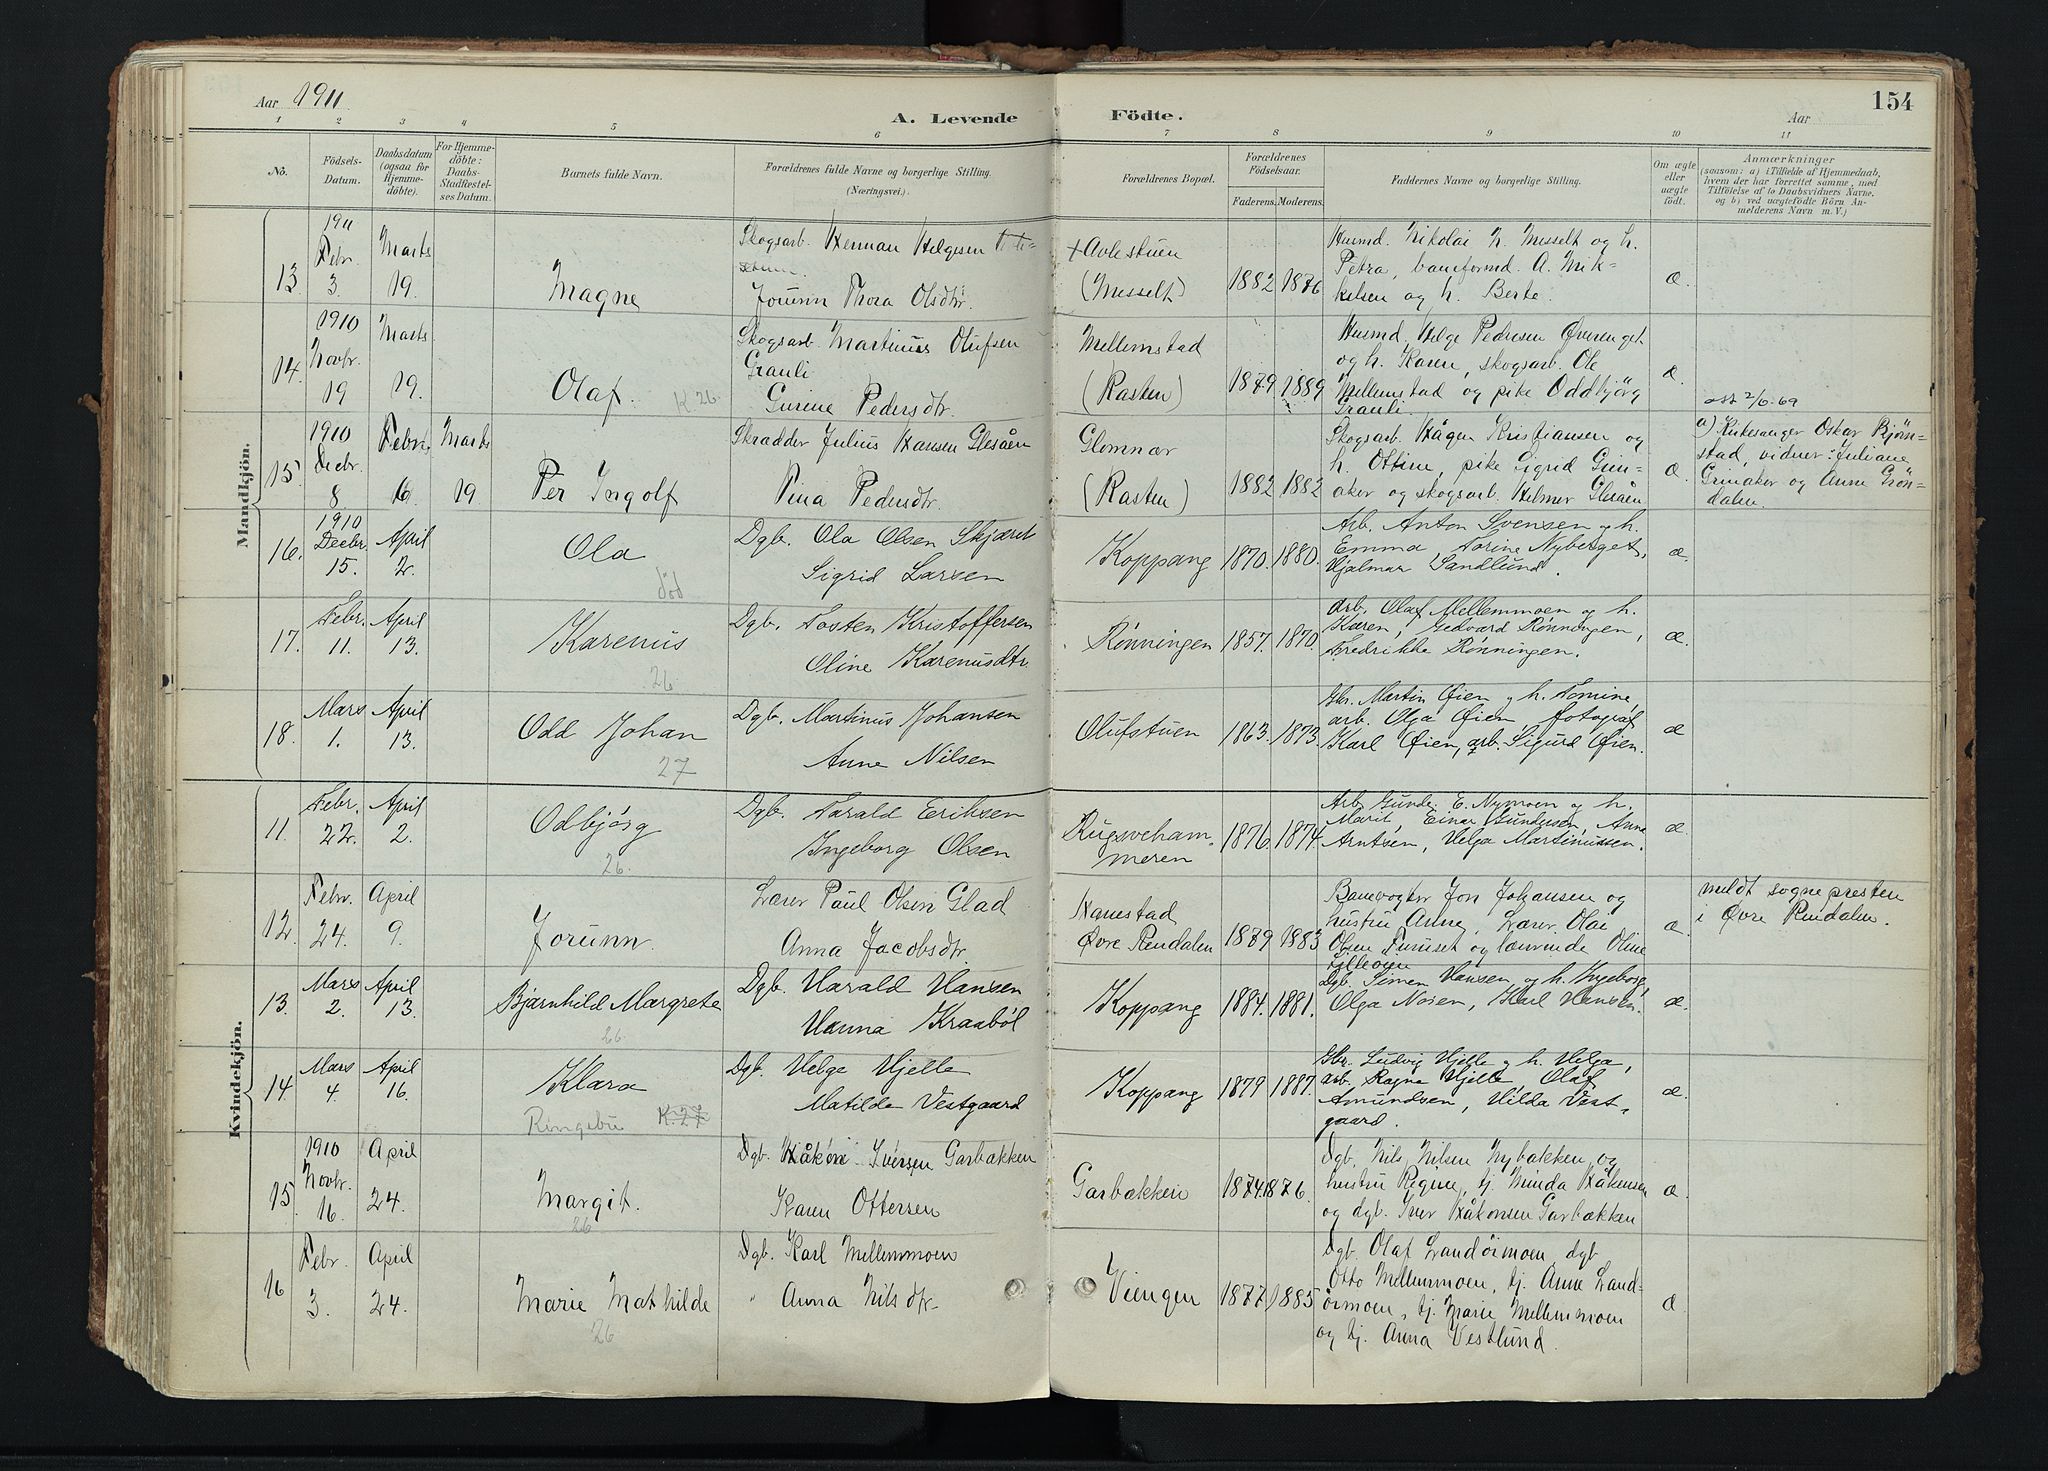 Aar 1911.
A. Levende Födte.
154
Aar
1 2 3 4 5 6 7 8 9 10 11
Nö.
Födsels-Datum.
Daabsdatum (ogsaa for Hjemmedöbte).
For Hjemmedöbte: Daabs-Stadfæstelses Datum.
Barnets fulde Navn.
Forældrenes fulde Navne og borgerlige Stilling. (Næringsvei.)
Forældrenes Bopæl.
Forældrenes Födselsaar.
Faderens. Moderens.
Faddernes Navne og borgerlige Stilling.
Om ægte eller uægte födt.
Anmærkninger
(saasom: a) i Tilfælde af Hjemmedaab, hvem der har forrettet samme, med Tilföielse af to Daabsvidners Navne. og b) ved uægtefödte Börn Anmelderens Navn m. V.)
Mandkjön.
13. 1911 Febr. 3. Marts 19.
Magne
Skogsarb. Herman Helgesen
Jorunn Thora Olsdtr.
+ Avlestuen
(Messelt)
1882 1876
Husmd. Nikolai N. Messelt og h.
Petra, baneformd. A. Mik-
kelsen og h. Berte.
æ.
14. 1910 Novbr. 19 Marts 19.
Olaf. K 26.
Skogsarb. Martinius Olufsen
Grauli
Gurene Pedersdtr.
Mellemstad
(Rasten)
1879 1889
Husmd. Helge Pedersen Øverenget
og h. Karen, skogsarb. Ole
Mellemstad og pike Oddbjörg
Grauli.
æ.
att 2/6.69
15. 1910 Decbr. 8 Febr. 6. Marts 19.
Per Ingolf
Skrædder Julius Hansen Glesåen
Pina Pedersdtr.
Glomnær
(Rasten)
1882 1882
Skogsarb. Hågen Kristiansen og
h. Ottine, pike Sigrid Grin-
aker og skogsarb. Helmer Glesåen
æ.
a) Kirkesanger Oskar Björn-
stad, vidner: Juliane
Grinaker og Anne Grön-
dalen.
16. 1910 Decbr. 15. April 2.
Ola
död
Dgb. Ola Olsen Skjæret
Sigrid Larsen
Koppang
1870. 1880.
Arb. Anton Svensen og h.
Emma, Torine Nyberget,
Hjalmar Sandlund.
æ.
17. Febr. 11. April 13.
Karenus
26
Dgb. Tosten Kristoffersen
Oline Karenusdtr.
Rønningen
1857. 1870.
Arb. Olaf Mellemmoen og h.
Karen, Gedvard Rønningen,
Fredrikke Rønningen.
æ.
18. Mars 1. April 13.
Odd Johan
27
Dgb. Martinus Johansen
Anne Nilsen
Olufstuen
1863. 1873.
Gbr. Martin Øien og h. Tomine,
arb. Olga Øien, fotograf
Karl Øien, arb. Sigurd Øien.
æ
Kvindekjön.
11. Febr. 22. April 2.
Odbjörg
26.
Dgb. Harald Eriksen
Ingeborg Olsen
Rugsveham-
meren
1876. 1874.
Arb. Gunder E. Nymoen og h.
Marit, Einar Gundersen, Anna
Arntsen, Helga Martinussen.
æ
12. Febr. 24. April 9.
Jorunn.
Lærer Paul Olsen Glad
Anna Jacobsdtr.
Hanestad
Øvre Rendalen
1879 1883
Banevogter Jon Johansen og
hustru Anne, Lærer Olai
Olsen Furuset og lærerinde Oline
Lilleøien
æ.
meldt sognepresten
i Øvre Rendalen.
13. Mars 2. April 13.
Bjarnhild Margrete
26.
Dgb. Harald Hansen
Hanna Kraabøl
Koppang
1884. 1881.
Dgb. Simen Hansen og h. Ingeborg,
Olga Noren, Karl Hansen.
æ.
14 Mars 4. April 16.
Klara
Ringebu K. 27
Dgb. Helge Hjelle
Matilde Vestgaard
Koppang
1879 1887.
Gbr. Ludvig Hjelle og h. Helga,
arb. Ragna Hjelle, Olaf
Amundsen, Hilda Vest-
gaard.
æ.
15. 1910 Novbr. 16. April 24.
Margit.
26
Dgb. Håkon Iversen Garbækken
Karen Ottersen
Garbækken
1874. 1876.
Dgb. Nils Nilsen Nybakken og
hustru Regine, tj. Minda Håkensen
og dgb. Iver Håkonsen Garbækken
æ.
16 Febr. 3. April 24.
Marie Mathilde
26
Dgb. Karl Mellemmoen
" Anna Nilsdtr.
Viengen
1877 1885
Dgb. Olaf Landörmoen, dgb
Otto Mellemmoen, tj. Anne Land-
örmoen, tj. Marie Mellemmoen
og tj. Anna Vestlund.
æ.